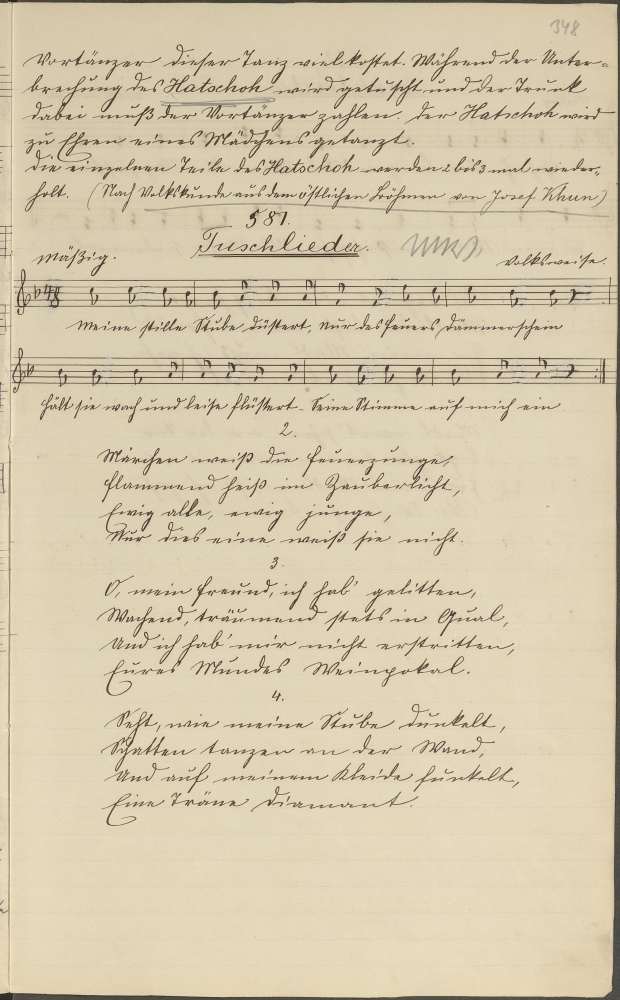 348
Vortänzer dieser Tanz viel kostet. Während der Unter-
brechung des Hatschoh wird getuscht und der Trunk
dabei muß der Vortänzer zahlen. Der Hatschoh wird
zu Ehren eines Mädchens getanzt.
Die einzelnen Teile des Hatschoh werden 2 bis 3 mal wieder-
holt. (Nach Volkskunde aus dem östlichen Böhmen von Josef Khun)
581.
Tuschlieder.
Mäßig. Volksweise.
Meine stille Stube düstert, nur des Feuers Dämmerschein
Hält sie wach und leise flüstert Seine Stimme auf mich ein
2.
Märchen weiß die Feuerzunge,
Flammend heiß im Zauberlicht,
Ewig alte, ewig junge,
Nur dies eine weiß sie nicht.
3.
O, mein Freund, ich hab' gelitten,
Wachend, träumend stets in Qual,
Und ich hab' mir nicht erstritten,
Eures Mundes Weinpokal.
4.
Seht, wie meine Stube dunkelt,
Schatten tanzen an der Wand,
Und auf meinem Kleide funkelt,
Eine Träne Diamant.